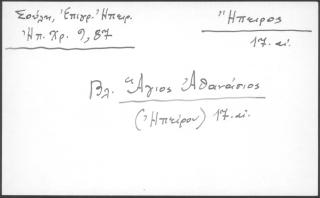 Σούλη, Ἐπιγρ. Ἠπειρ.
Ἠπ. Χρ. 9, 87
Ἤπειρος
17. αἰ.
Βλ. Ἅγιος Ἀθανάσιος
(Ἠπείρου) 17. αἰ.